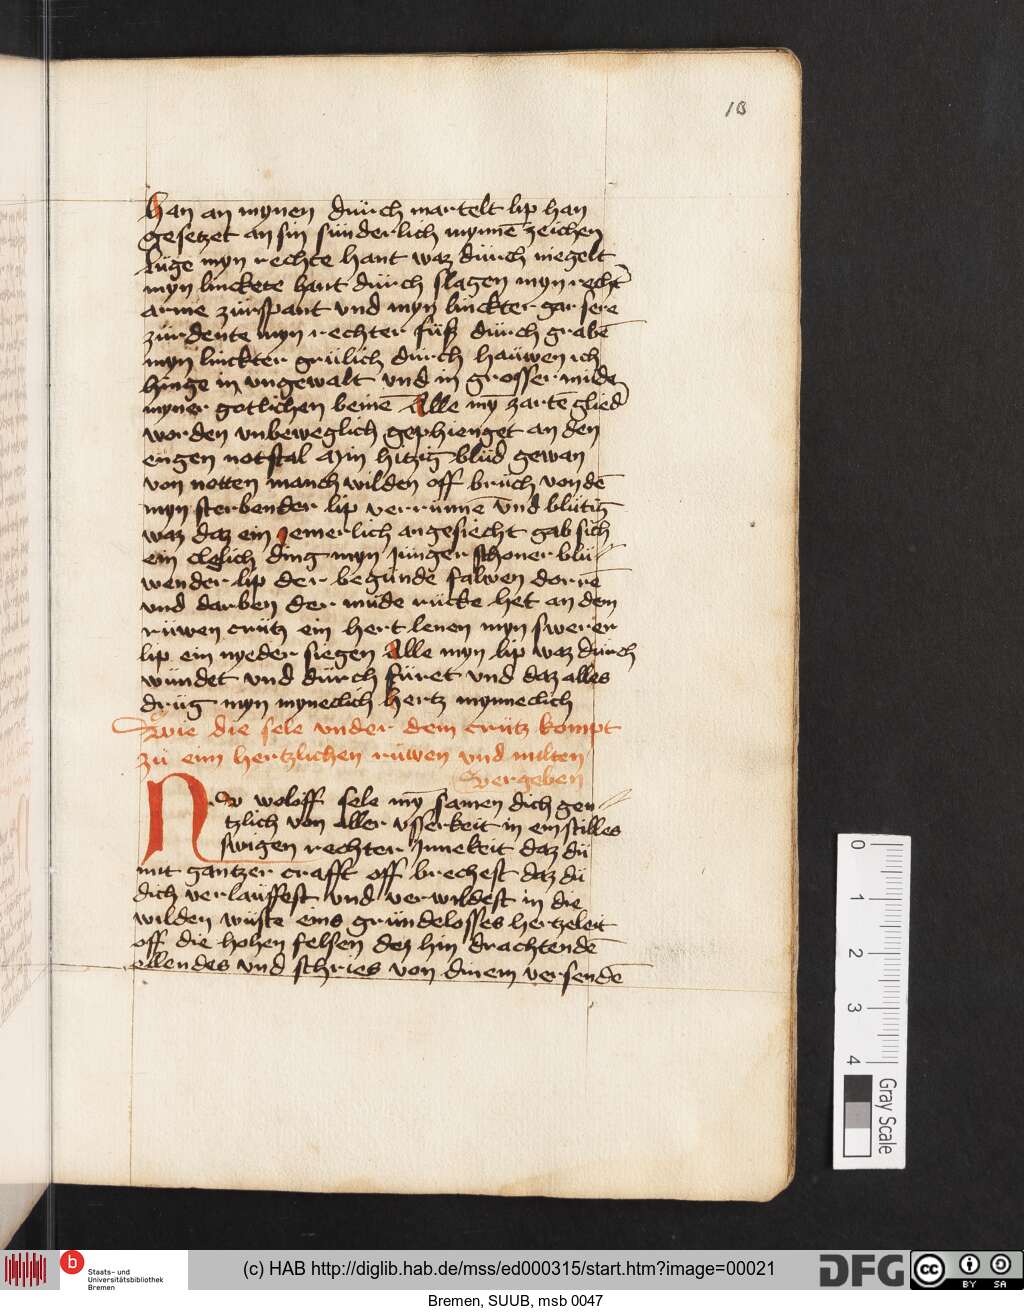 18
han an mynen dürch martelt lip han
gesetzet an sin sünderlich mynnē zeichen
lüge myn rechte hant waz dürch niegelt
myn linckete hant dürch slagen myn recht
arme zürspant vnd myn linckter gar sere
zürdente myn rechter füß dürch grabē
myn linckter grülich dürch haüwen ich
hinge in vngewalt vnd in grosser müde
myner gotlichen beinē Alle mȳ zartē glied
worden vnbeweglich gephienget an den
engen notstal Min hitzig blüd gewan
von notten manch wilden off brüch von dē
myn sterbender lip verrünnē vnd blütig
waz daz ein iemerlich angesiecht gab sich
ein cleglich ding myn jünger schoner blü
wender lip der begünde falwen dorrē
vnd darben der müde rücke het an dem
rüwen crütz ein hert lenen myn swerer
lip ein nyeder siegen Alle myn lip waz dürch
wündet vnd dürch füret vnd daz alles
drüg myn myneclich hertz mynneclich
Wie die sele vnder dem crütz kompt
zü eim hertzlichen rüwen vnd milten
vergeben
Nv woloff sele mȳ samen dich gen
tzlich von aller vsserkeit in ein stilles
swigen rechter Innekeit daz dü
mit gantzer crafft off brechest daz dü
dich verlaüffest vnd verwildest in die
wilden wüste eins gründelosses hertzeleit
off die hohen felsen dez hin drachtendē
ellendes vnd schries von dinem versendē
0 1 2 3 4
Gray Scale
b
Staats- und
Universitätsbibliothek
Bremen
(c) HAB http://diglib.hab.de/mss/ed000315/start.htm?image=00021
DFG
cc BY SA
Bremen, SUUB, msb 0047